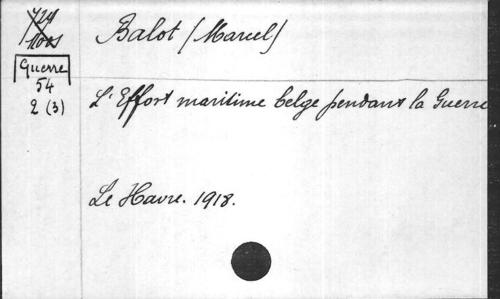 Balot (Marcel)
Guerre
54
2 (3)
L'Effort maritime belge pendant la Guerre
Le Havre. 1918.